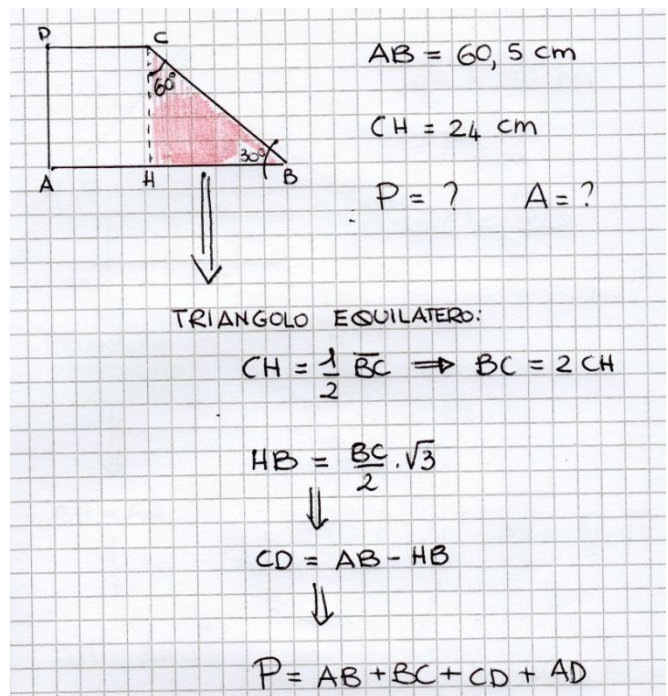 D C
60°
30°
A H B
AB = 60,5 cm
CH = 24 cm
P = ? A = ?
TRIANGOLO EQUILATERO:
CH = 1/2 BC ⟹ BC = 2 CH
HB = BC/2 · √3
CD = AB - HB
P = AB + BC + CD + AD